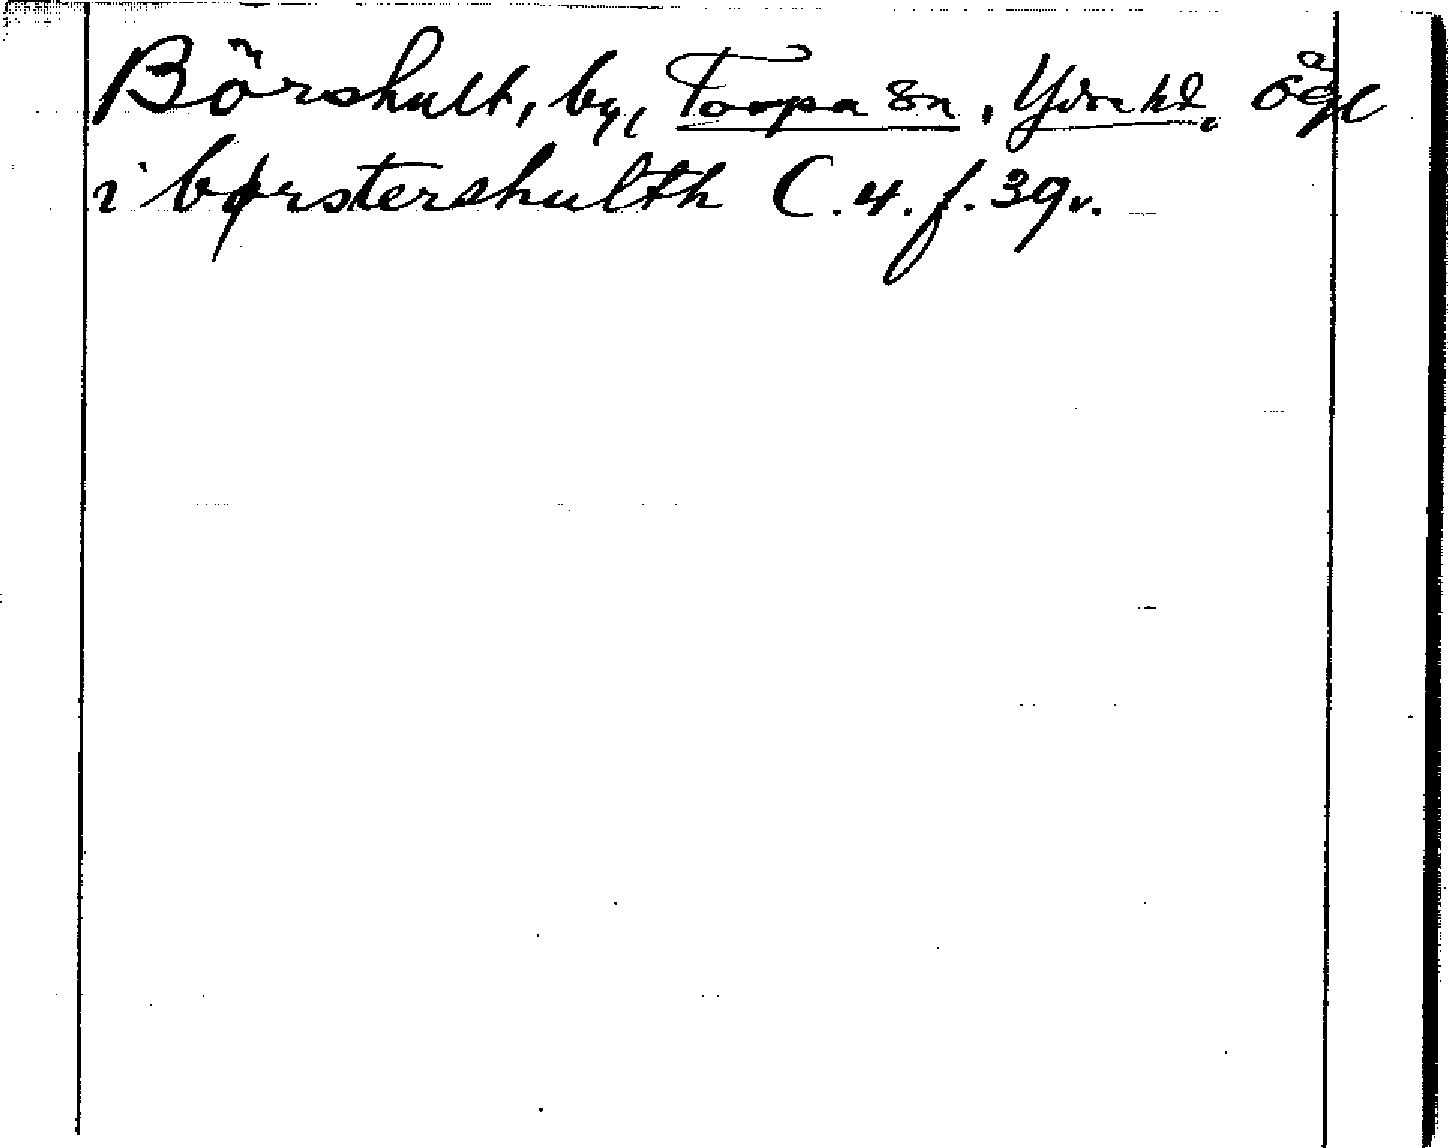 Börshult, by, Torpa sn, Ydre hd, Ögl
i børstershulth C. 4. f. 39v.